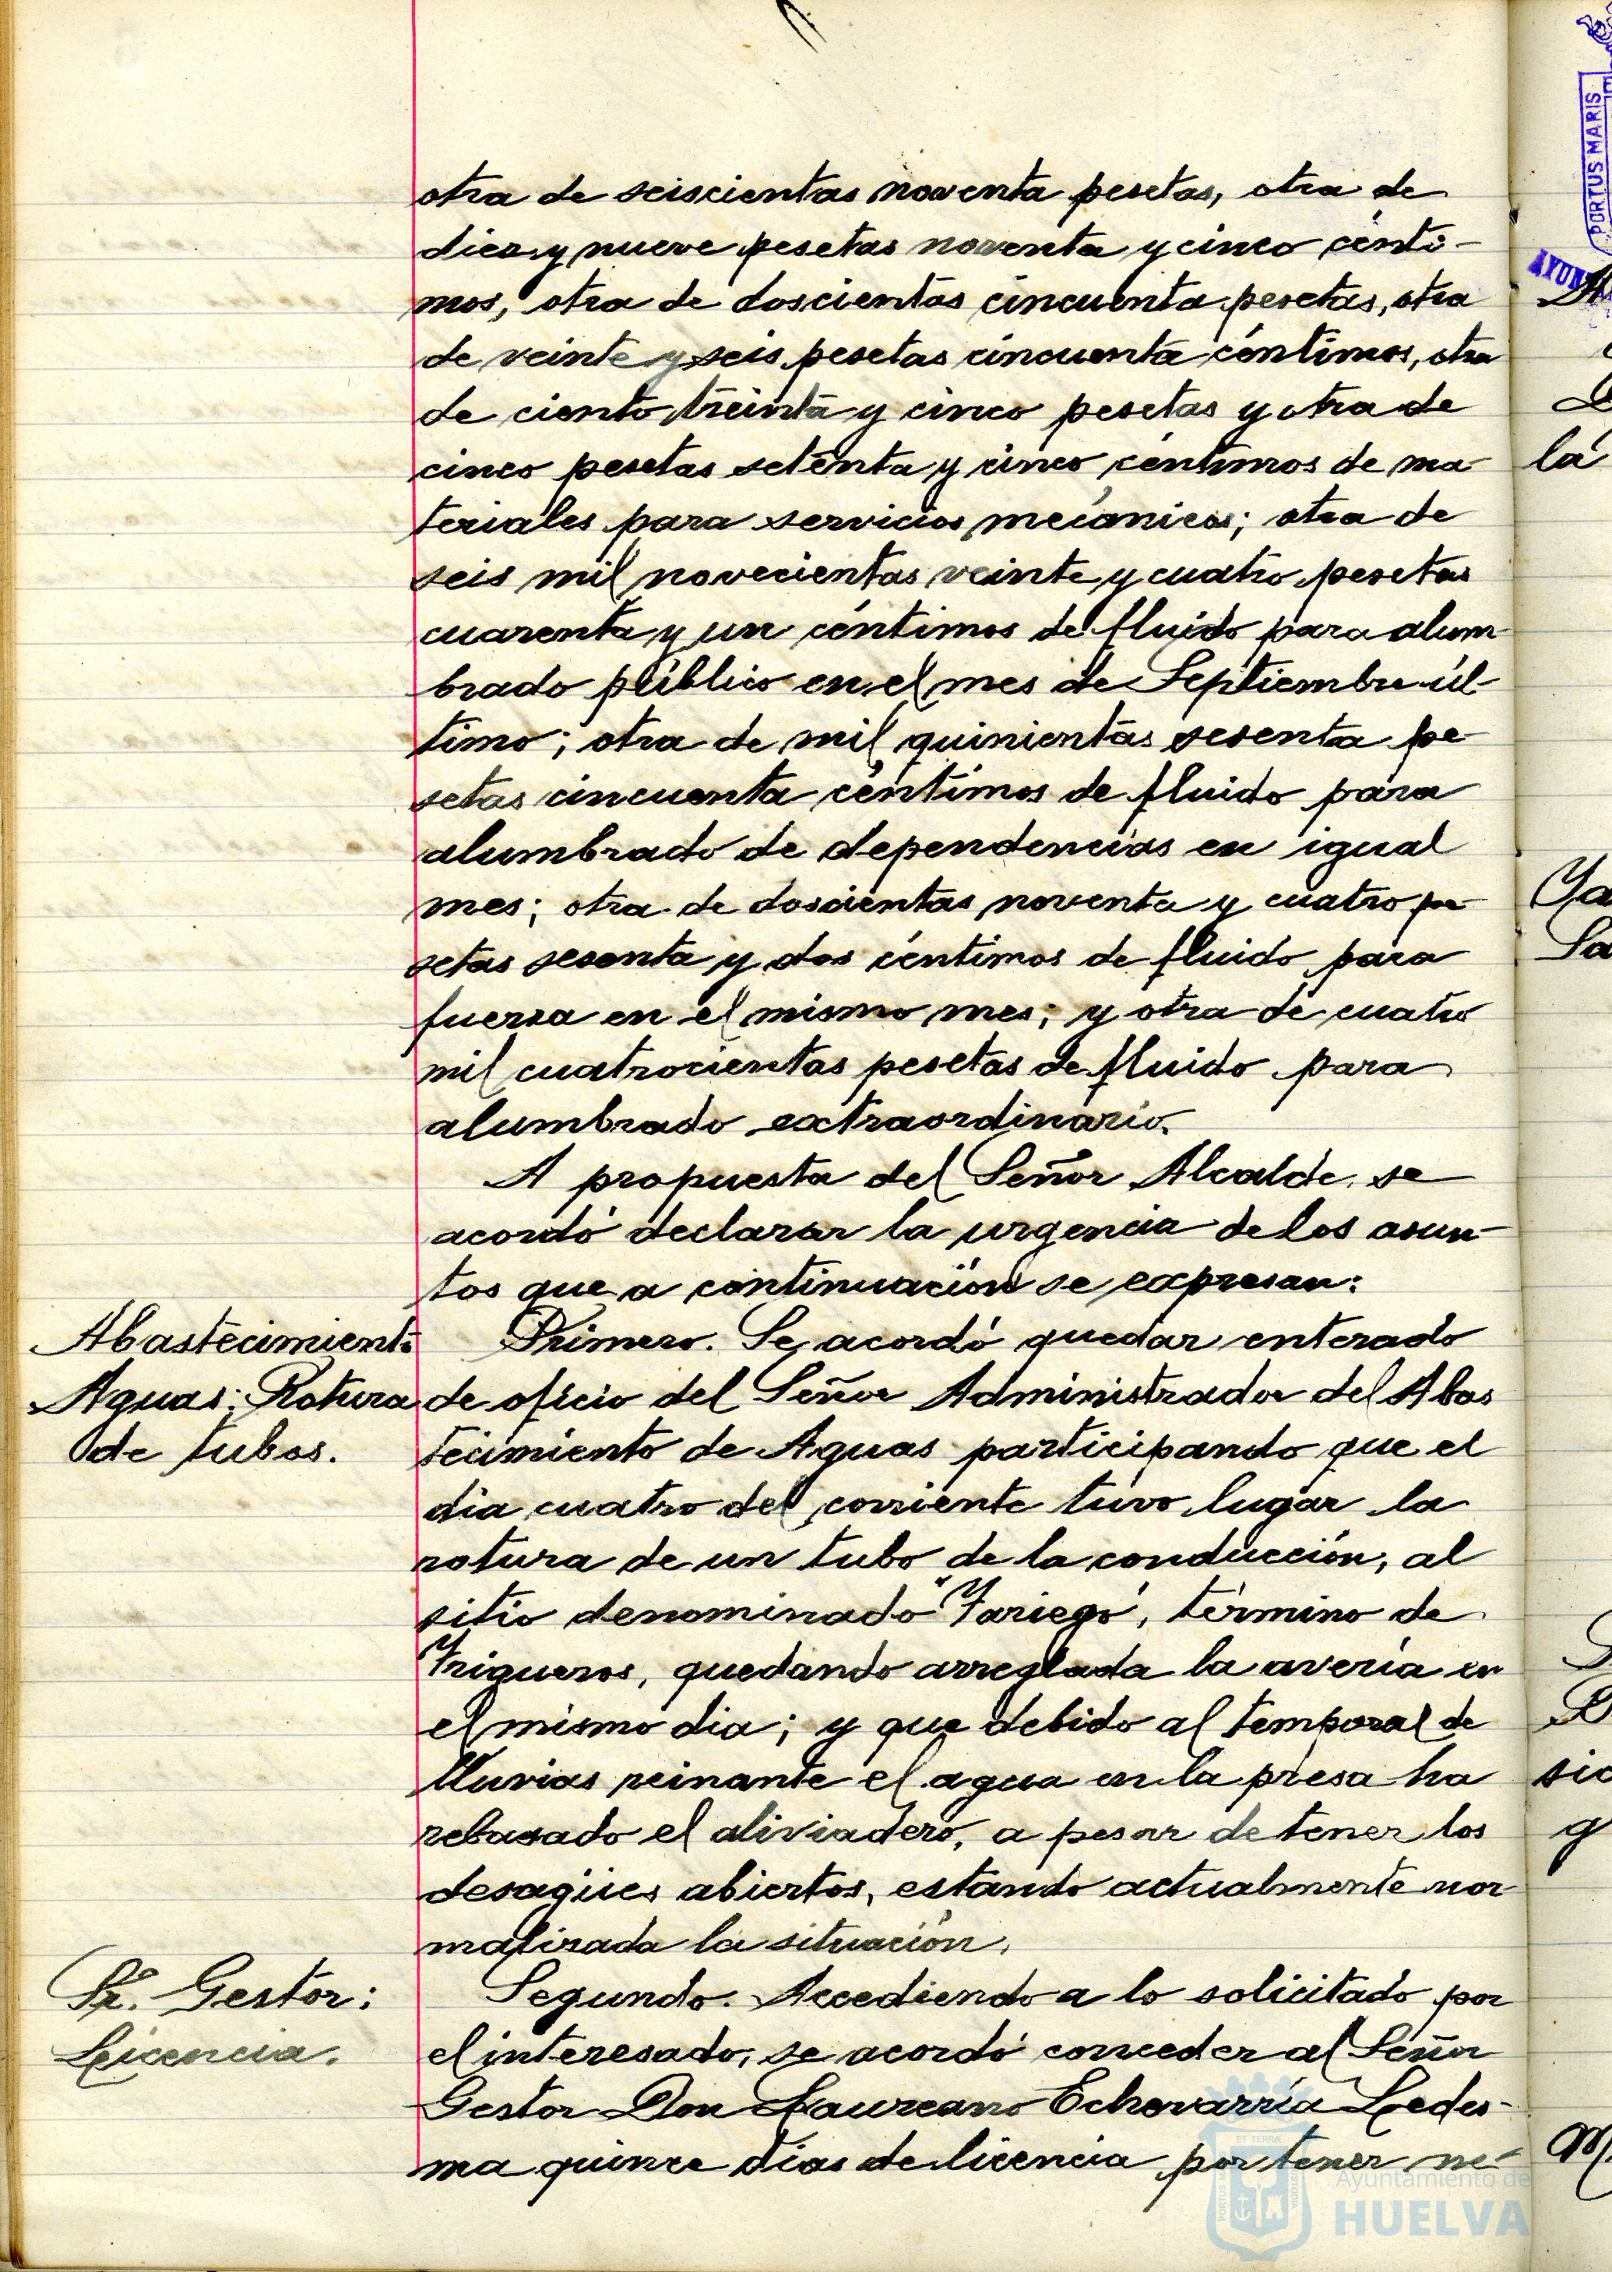 otra de seiscientas noventa pesetas, otra de
diez y nueve pesetas noventa y cinco cénti-
mos, otra de doscientas cincuenta pesetas, otra
de veinte y seis pesetas cincuenta céntimos, otra
de ciento treinta y cinco pesetas y otra de
cinco pesetas setenta y cinco céntimos de ma-
teriales para servicios mecánicos; otra de
seis mil novecientas veinte y cuatro pesetas
cuarenta y un céntimos de fluido para alum-
brado público en el mes de Septiembre úl-
timo; otra de mil quinientas sesenta pe-
setas cincuenta céntimos de fluido para
alumbrado de dependencias en igual
mes; otra de doscientas noventa y cuatro pe-
setas sesenta y dos céntimos de fluido para
fuerza en el mismo mes; y otra de cuatro
mil cuatrocientas pesetas de fluido para
alumbrado extraordinario.
A propuesta del Señor Alcalde se
acordó declarar la urgencia de los asun-
tos que a continuación se expresan:
Abastecimiento
Aguas: Rotura
de tubos.
Primero. Se acordó quedar enterado
de oficio del Señor Administrador del Abas
tecimiento de Aguas participando que el
dia cuatro del corriente tuvo lugar la
rotura de un tubo de la conducción, al
sitio denominado "Fariego", término de
Trigueros, quedando arreglada la avería en
el mismo dia; y que debido al temporal de
lluvias reinante el agua en la presa ha
rebasado el aliviadero, a pesar de tener los
desagües abiertos, estando actualmente nor
malizada la situación.
Sr. Gestor:
Licencia.
Segundo. Accediendo a lo solicitado por
el interesado, se acordó conceder al Señor
Gestor Don Laureano Echevarría Ledes-
ma quince dias de licencia por tener ne-
PORTUS MARIS
AYUN
la
Ya
Sa
sic
g
M
ET TERRÆ
Ayuntamiento de
HUELVA